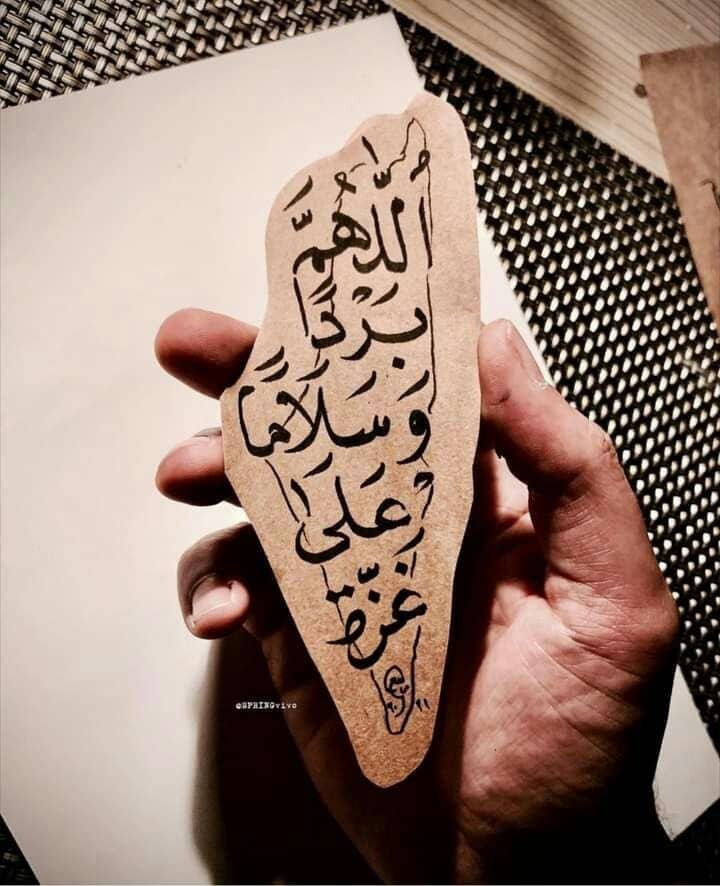 اللَّهُمَّ
بَرْدًا
وَسَلَامًا
عَلَى
غَزّة
@SPRINGvivo